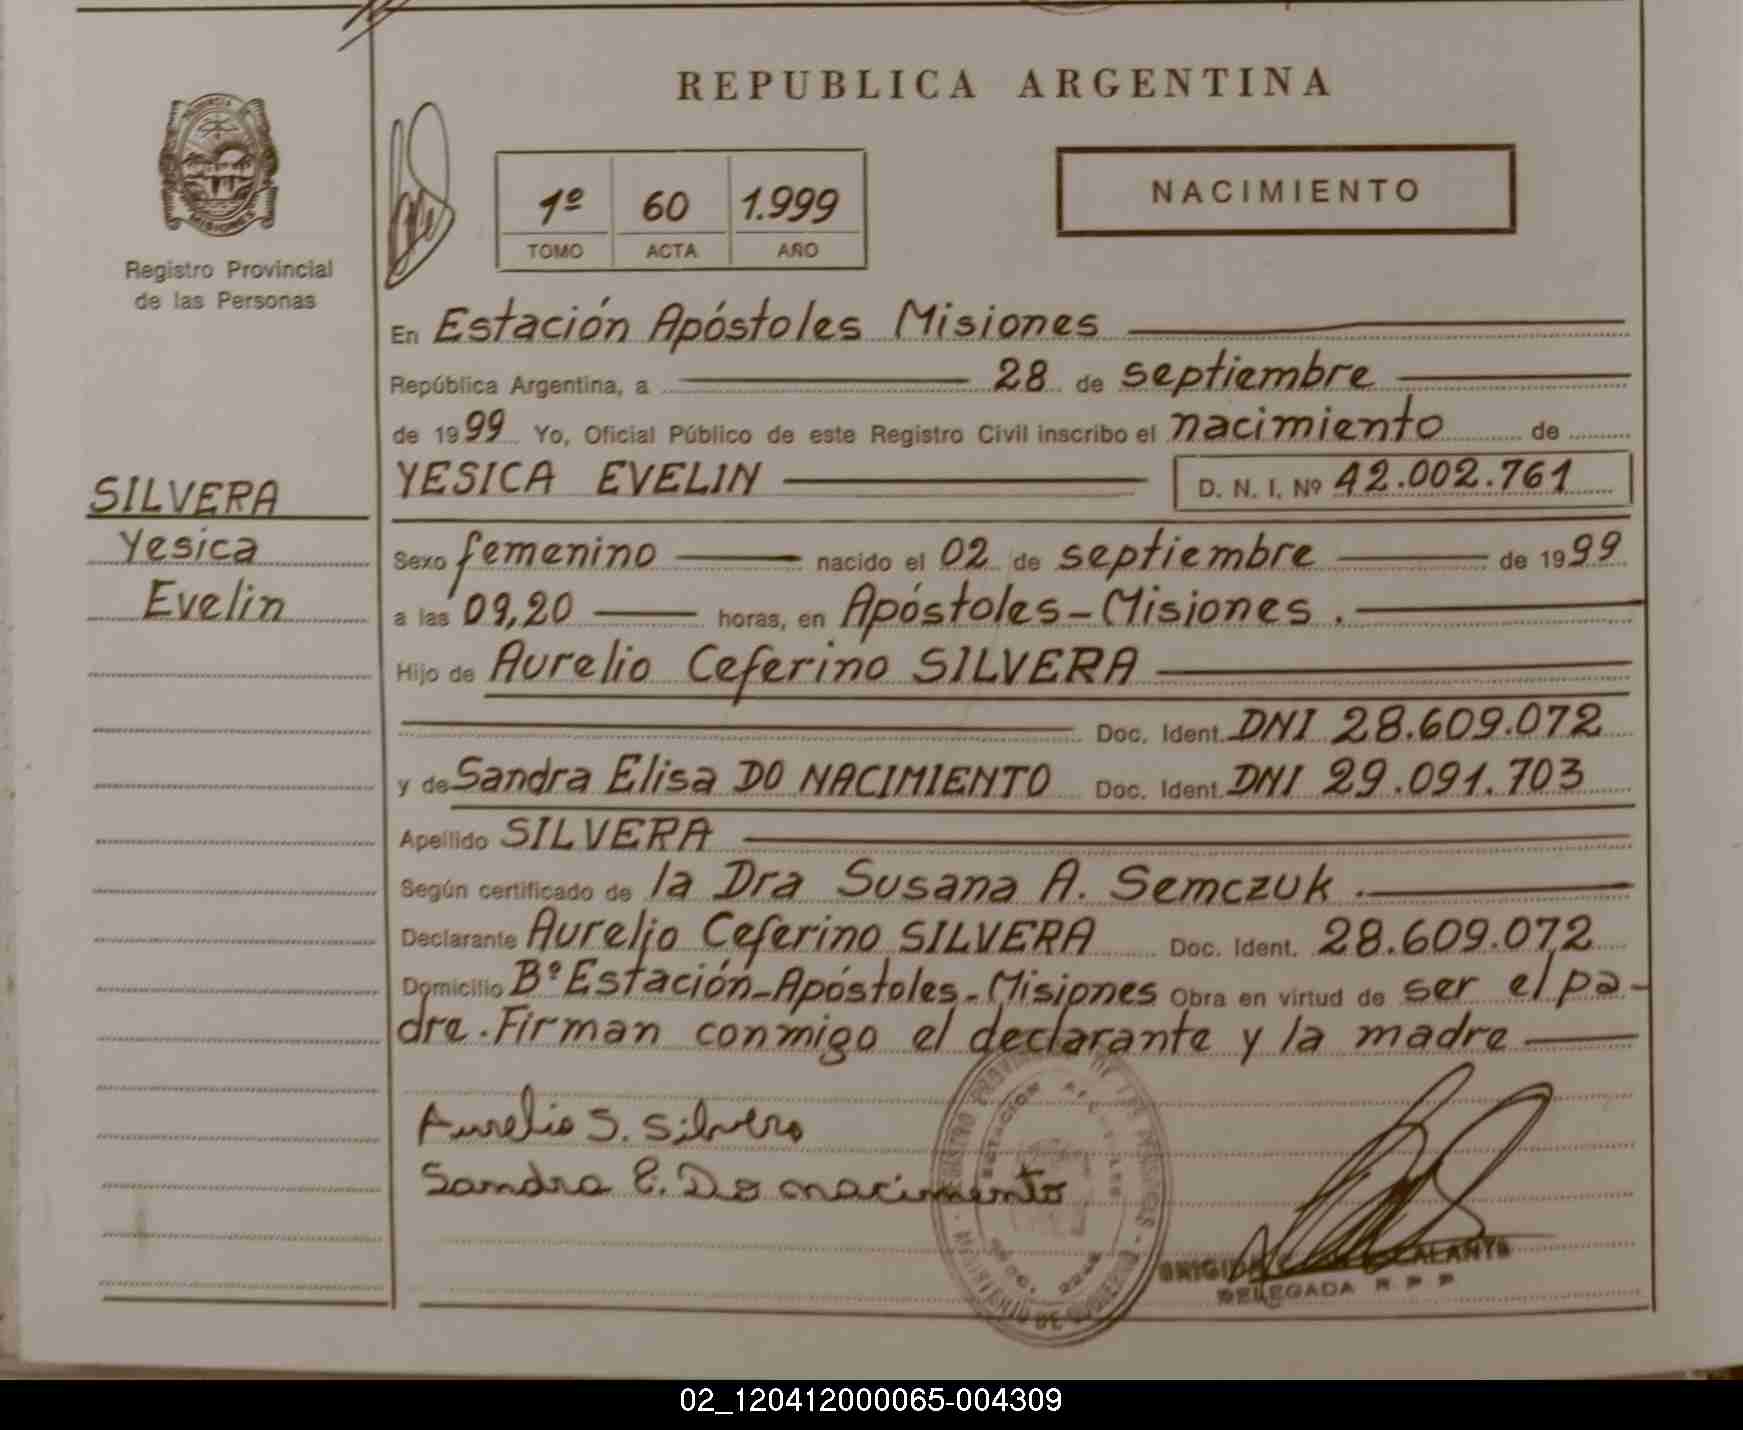 REPUBLICA ARGENTINA
PROVINCIA
MISIONES
Registro Provincial
de las Personas
1º 60 1.999
TOMO ACTA AÑO
NACIMIENTO
En Estación Apóstoles Misiones
República Argentina, a 28 de septiembre
de 1999 Yo, Oficial Público de este Registro Civil inscribo el nacimiento de
YESICA EVELIN D. N. I. Nº 42.002.761
SILVERA
Yesica
Evelin
Sexo femenino nacido el 02 de septiembre de 1999
a las 09,20 horas, en Apóstoles-Misiones.
Hijo de Aurelio Ceferino SILVERA
Doc. Ident. DNI 28.609.072
y de Sandra Elisa DO NACIMIENTO Doc. Ident. DNI 29.091.703
Apellido SILVERA
Según certificado de la Dra Susana A. Semczuk.
Declarante Aurelio Ceferino SILVERA Doc. Ident. 28.609.072
Domicilio Bº Estación-Apóstoles-Misiones Obra en virtud de ser el pa-
dre. Firman conmigo el declarante y la madre
Aurelio S. Silvero
Sandra E. Do nacimento
DELEGADA R P P
02_120412000065-004309